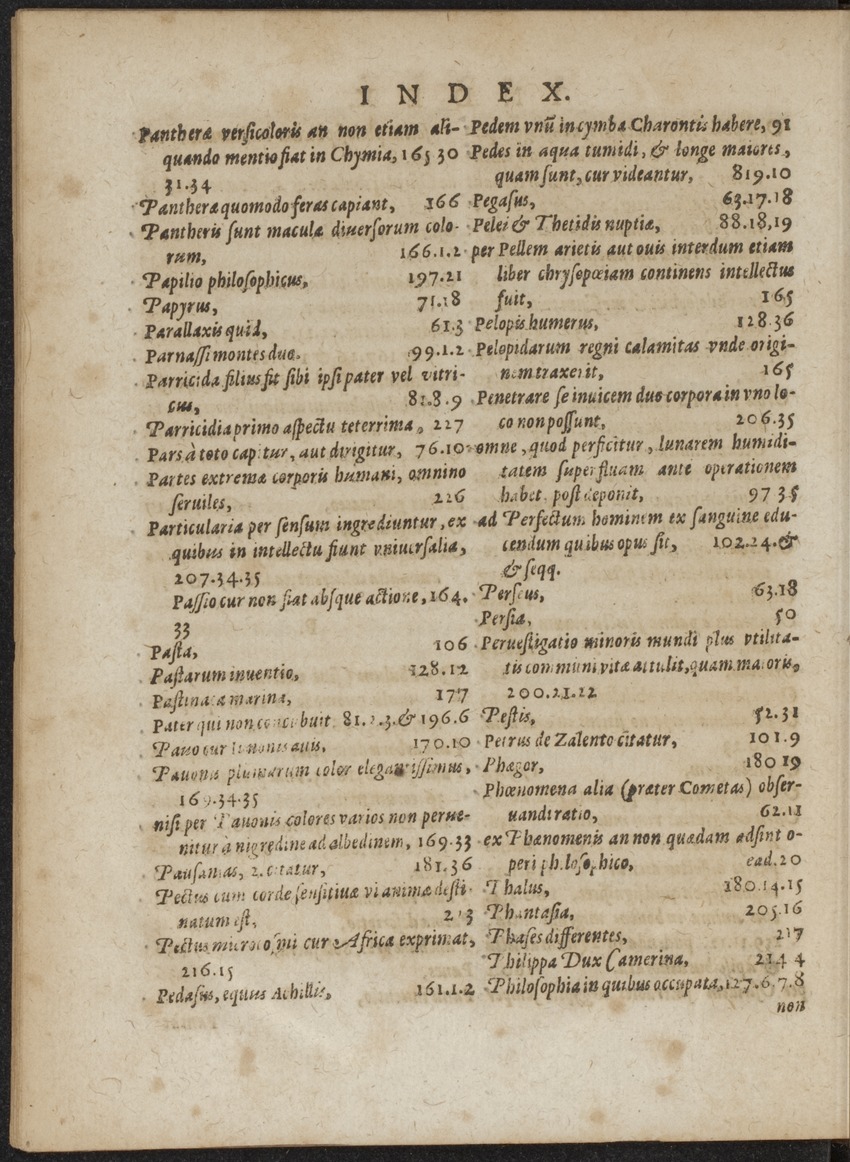 INDEX.
Pantheræ versicoloris an non etiam ali-
quando mentio fiat in Chymia, 165 30
31.34
Pantheræ quomodo feras capiant, 166
Pantheris sunt maculæ diuersorum colo-
rum, 166.1.2
Papilio philosophicus, 197.21
Papyrus, 71.18
Parallaxis quid, 61.3
Parnassi montes duo. 99.1.2
Parricida filius fit sibi ipsi pater vel vitri-
cus, 81.8.9
Parricidia primo aspectu teterrima, 227
Pars à toto capitur, aut dirigitur, 76.10
Partes extremæ corporis humani, omnino
seruiles, 226
Particularia per sensum ingrediuntur, ex
quibus in intellectu fiunt vniuersalia,
207.34.35
Passio cur non fiat absque actione, 164.
33
Pasta, 106
Pastarum inuentio, 128.12
Pastinaca marina, 177
Pater qui non concubuit 81.2.3. & 196.6
Pauo cur Iunonis auis, 170.10
Pauonis plumarum color elegantissimus,
169.34.35
nisi per Pauonis colores varios non perue-
nitur à nigredine ad albedinem, 169.33
Pausanias, 2. citatur, 181.36
Pectus cum corde sensitiuæ vi animæ desti-
natum est, 213
Pectus microcosmi cur Africæ exprimat,
216.15
Pedasus, equus Achillis, 161.1.2
Pedem vnũ in cymba Charontis habere, 91
Pedes in aqua tumidi, & longe maiores,
quam sunt, cur videantur, 819.10
Pegasus, 63.17.18
Pelei & Thetidis nuptiæ, 88.18,19
per Pellem arietis aut ouis interdum etiam
liber chrysopœiam continens intellectus
fuit, 165
Pelopis humerus, 128.36
Pelopidarum regni calamitas vnde origi-
nem traxerit, 165
Penetrare se inuicem duo corpora in vno lo-
co non possunt, 206.35
omne, quod perficitur, lunarem humidi-
tatem superfluam ante operationem
habet. post deponit, 97 35
ad Perfectum hominem ex sanguine edu-
cendum quibus opus sit, 102.24. &
& seqq.
Perseus, 63.18
Persia, 50
Peruestigatio minoris mundi plus vtilita-
tis communi vitæ attulit, quam maioris,
200.21.22
Pestis, 52.31
Petrus de Zalento citatur, 101.9
Phægor, 180 19
Phœnomena alia (præter Cometas) obser-
uandi ratio, 62.11
ex Phænomenis an non quædam adsint o-
peri philosophico, ead.20
Thalus, 180.14.15
Phantasia, 205.16
Phases differentes, 217
Philippa Dux Camerina, 214 4
Philosophia in quibus occupata, 127.6.7.8
non